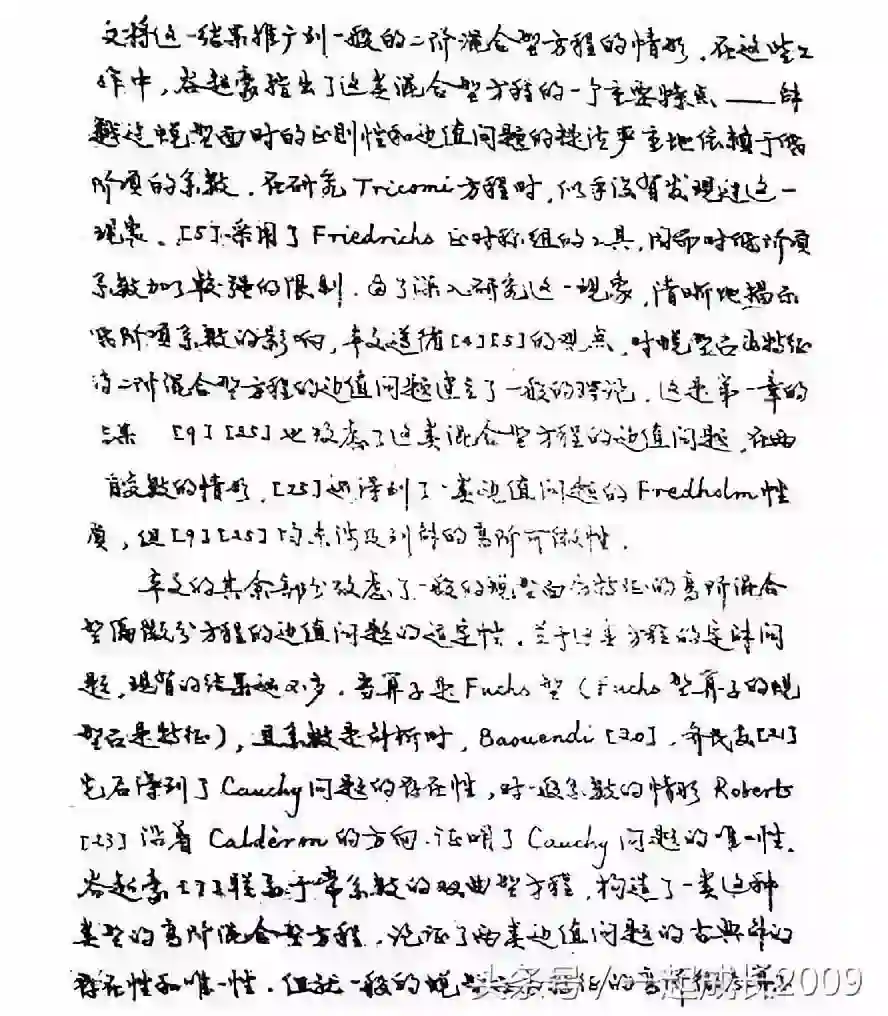 文将这一结果推广到一般的二阶混合型方程的情形. 在这些工
作中, 谷超豪指出了这类混合型方程的一个主要特点——解
越过蜕型面时的正则性和边值问题的提法严重地依赖于低
阶项的系数. 在研究Tricomi方程时, 似乎没有发现过这一
现象. [5]采用了Friedrichs正对称组的工具, 因而对低阶项
系数加了较强的限制. 为了深入研究这一现象, 清晰地揭示
低阶项系数的影响, 本文遵循[4][5]的观点, 对蜕型面为特征
的二阶混合型方程的边值问题建立了一般的理论. 这是第一章的
[9][25]也考虑了这类混合型方程的边值问题, 在两
自变数的情形, [25]还得到了一类边值问题的Fredholm性
质, 但[9][25]均未涉及到解的高阶可微性.
本文的其余部分考虑了一般的蜕型面为特征的高阶混合
型偏微分方程的边值问题的适定性. 关于这类方程的定解问
题, 现有的结果还不多. 当算子是Fuchs型(Fuchs型算子的蜕
型面是特征), 且系数是解析时, Baouendi[20], 齐民友[21]
先后得到了Cauchy问题的存在性, 对一般系数的情形Roberts
[23]沿着Calderon的方向证明了Cauchy问题的唯一性.
谷超豪[7]联系于常系数的双曲型方程, 构造了一类这种
类型的高阶混合型方程, 论证了两类边值问题的古典解的
存在性和唯一性. 但就一般的蜕型面为特征的高阶
头条号 / 一起成长2009